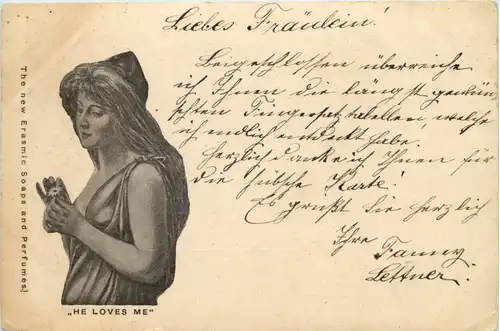 Liebes Fräulein!
Beigeschlossen überreiche
ich Ihnen die längst gewün
schten Fingersatztabellen, welche
ich endlich entdeckt habe.
Herzlich danke ich Ihnen für
die hübsche Karte!
Es grüßt Sie herzlich
Ihre Fanny
Lettner.
The new Erasmic Soaps and Perfumes.
„HE LOVES ME"